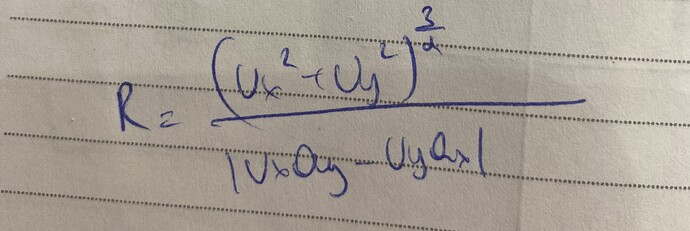 R = (Vx² + Vy²)^(3/2) / |VxAy - VyAx|